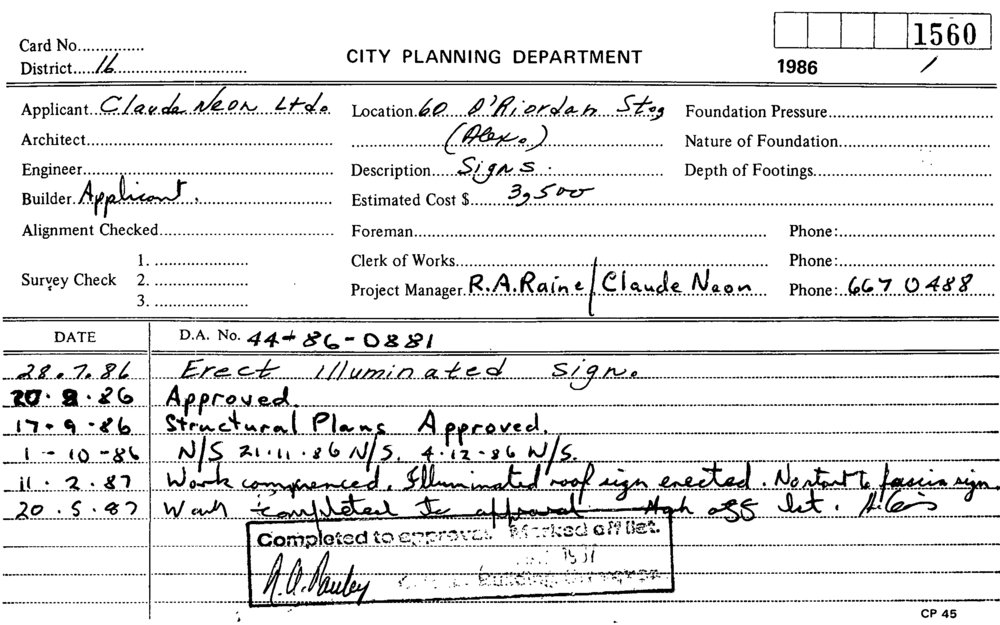 1560
Card No...............
District.....16..............................
CITY PLANNING DEPARTMENT
1986 /
Applicant Claude Neon Ltd. Location 60 O'Riordan St., Foundation Pressure
Architect (Alex.) Nature of Foundation
Engineer Description Signs. Depth of Footings
Builder Applicant. Estimated Cost $ 3,500
Alignment Checked Foreman Phone:
Survey Check 1. Clerk of Works Phone:
2. Project Manager R.A.Raine/Claude Neon Phone: 667 0488
3.
DATE D.A. No. 44-86-0881
28.7.86 Erect Illuminated Sign.
20.8.86 Approved.
17-9-86 Structural Plans Approved.
1-10-86 N/S 21.11.86 N/S. 4.12.86 N/S.
11.2.87 Work commenced. Illuminated roof sign erected. No start to fascia sign.
20.5.87 Work completed to approval off list.
Completed to approval. Marked off list.
Building
CP 45